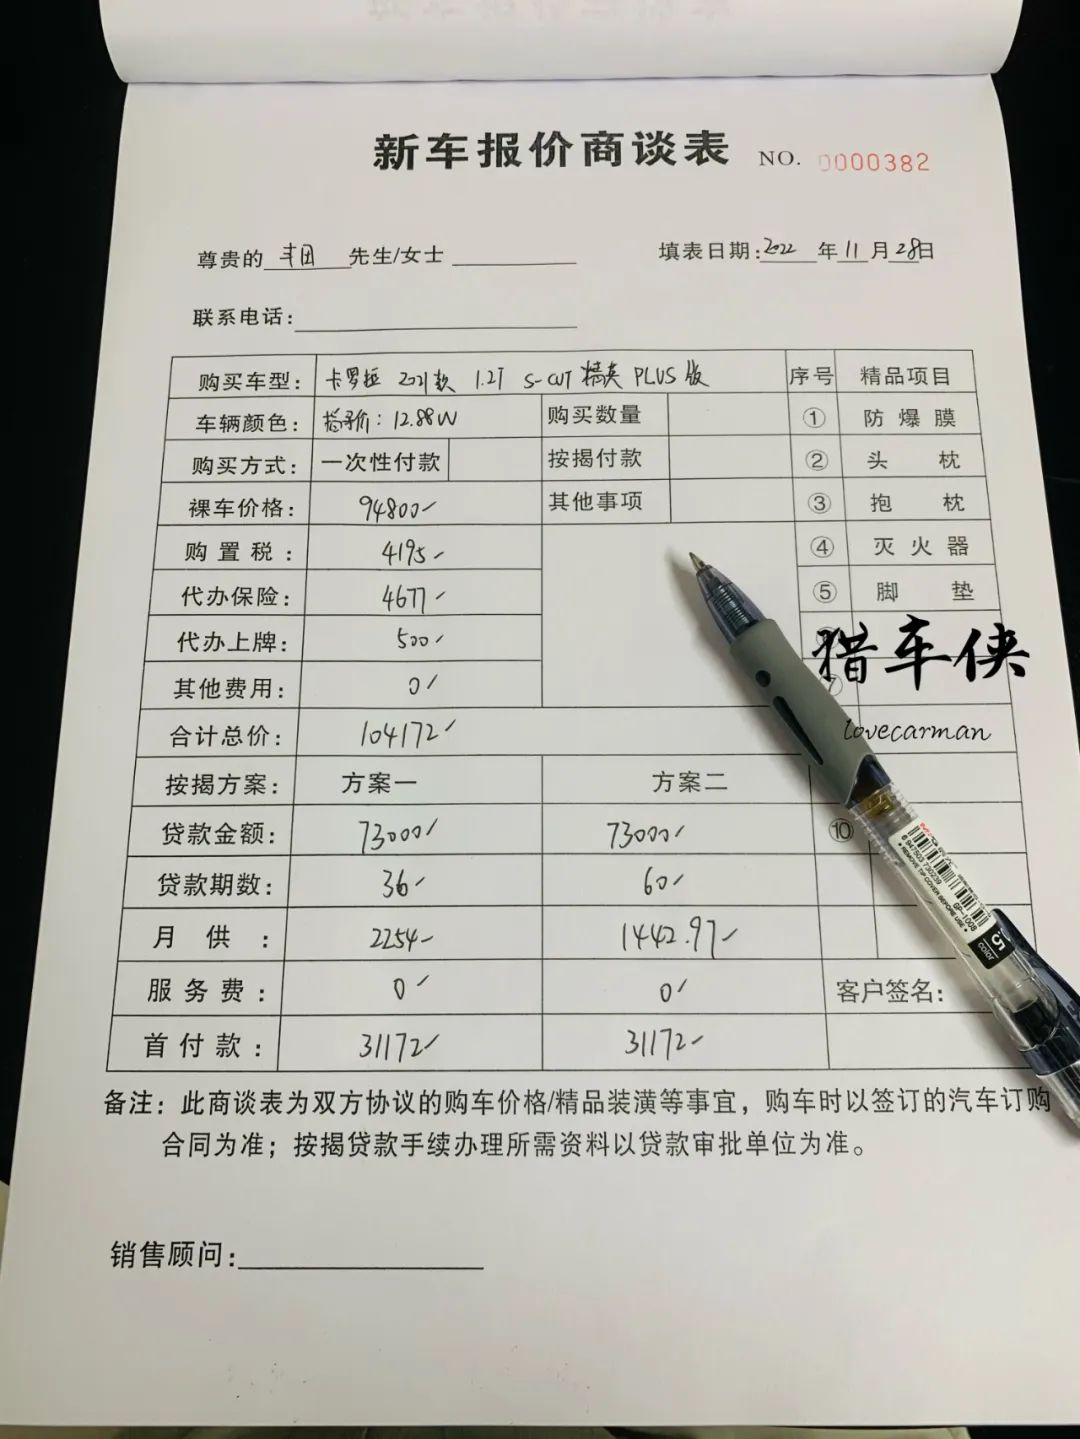 新车报价商谈表 NO. 0000382
尊贵的 丰田 先生/女士 填表日期: 2022 年 11 月 28 日
联系电话:
购买车型: 卡罗拉 2021款 1.2T S-CVT 精英 PLUS 版 序号 精品项目
车辆颜色: 指导价: 12.88W 购买数量 ① 防爆膜
购买方式: 一次性付款 按揭付款 ② 头枕
裸车价格: 94800 其他事项 ③ 抱枕
购置税: 4195 ④ 灭火器
代办保险: 4677 ⑤ 脚垫
代办上牌: 500
猎车侠
其他费用: 0
合计总价: 104172
lovecarman
按揭方案: 方案一 方案二
贷款金额: 73000 73000 ⑩
贷款期数: 36 60
月供: 2254 1442.97
服务费: 0 0 客户签名:
首付款: 31172 31172
备注: 此商谈表为双方协议的购车价格/精品装潢等事宜, 购车时以签订的汽车订购
合同为准; 按揭贷款手续办理所需资料以贷款审批单位为准。
销售顾问:
GP-1008